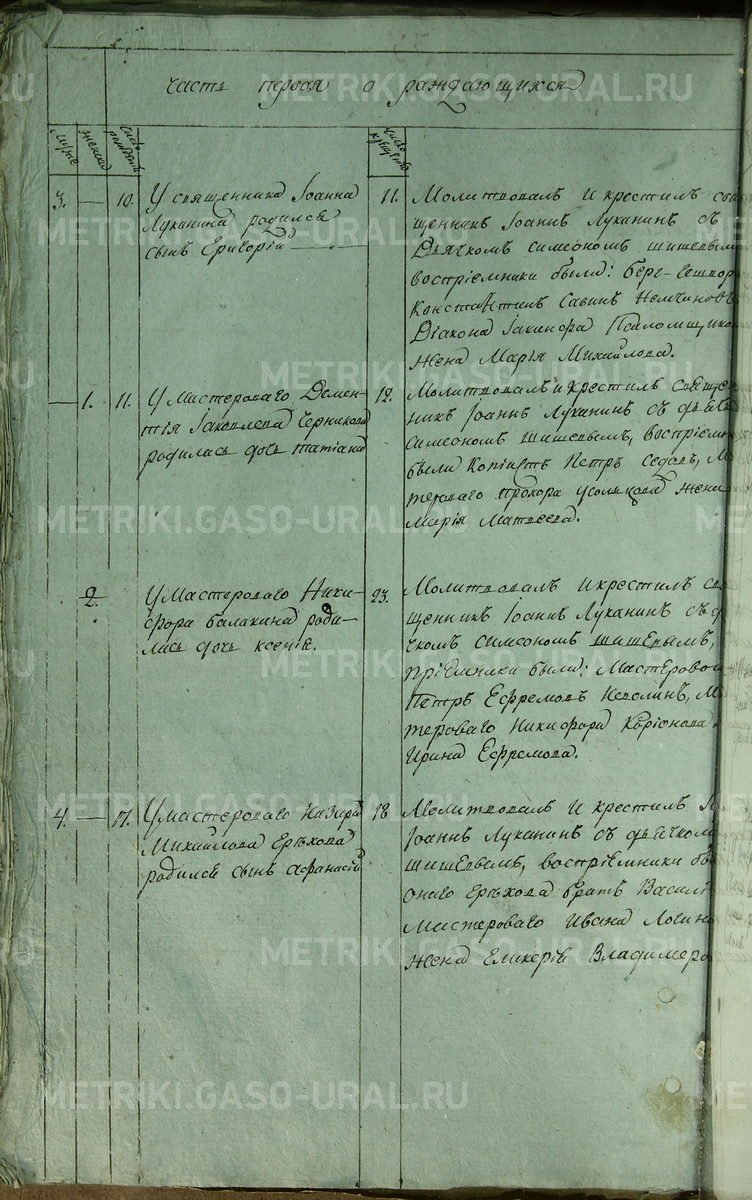 часть первая о раждающихся
муже
женска
число рожденїя
число крещенїя
3. — 10.
У священника Іоанна
Луканина родился
сынъ Григорій
11.
Молитвовалъ и крестилъ свя
щенникъ Іоаннъ Луканинъ съ
Дьячкомъ Симеономъ Шишевымъ
воспріемники были: берг-гешвор
Константинъ Савинъ Немчиновъ
Діакона Іакинфа Псаломщикова
жена Марія Михайлова.
— 1. 11.
У Мастероваго Демен-
тія Іаковлева Черникова
родилась дочь Татіана
12.
Молитвовалъ и крестилъ священ
никъ Іоаннъ Луканинъ съ дьячко
Симеономъ Шишевымъ, воспріемн
были Копіистъ Петръ Седовъ, М
тероваго Прохора жена
Марія Матвеева.
2.
У Мастероваго Ники-
фора Балакина роди-
лась дочь Ксенія.
23.
Молитвовалъ и крестилъ свя
щенникъ Іоаннъ Луканинъ съ д
чкомъ Симеономъ Шишевымъ,
пріемники были: Мастеровой
Петръ Ефремовъ Неволинъ, М
тероваго Никифора
Ирина Ефремова.
4. — 17.
У мастероваго Назара
Михайлова Ерѣхова
родился сынъ Афанасій
18
Молитвовалъ и крестилъ
Іоаннъ Луканинъ съ дьячкомъ
Шишевымъ, воспріемники бы
онаго Ерѣхова братъ Василі
Мастероваго Ивана Логин
жена Гликерія Владимеро
METRIKI.GASO-URAL.RU